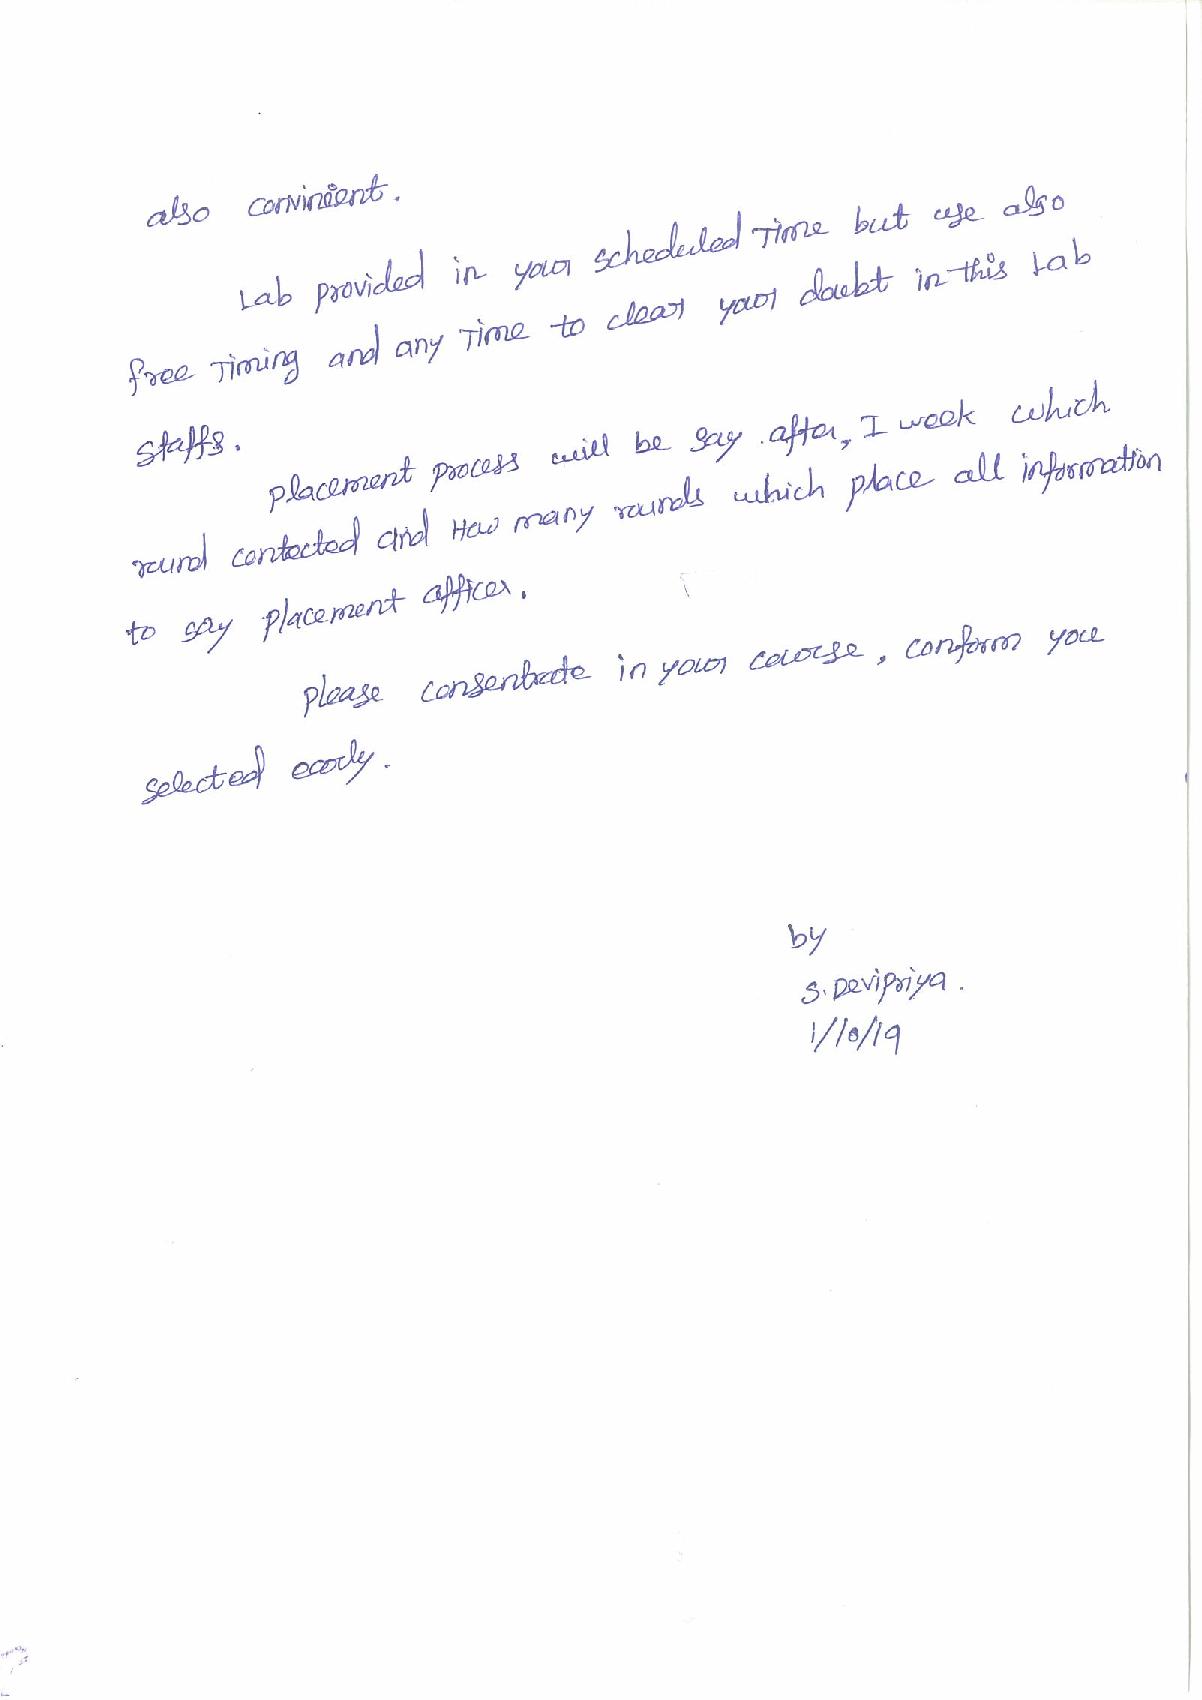 also convinient.
Lab provided in your scheduled Time but use also
free Timing and any Time to clear your doubt in this Lab
staffs.
placement process will be say after, I week which
round contected and How many rounds which place all information
to say placement officer.
please consentrate in your course, conform you
selected early.
by
S. Devipriya.
1/10/19